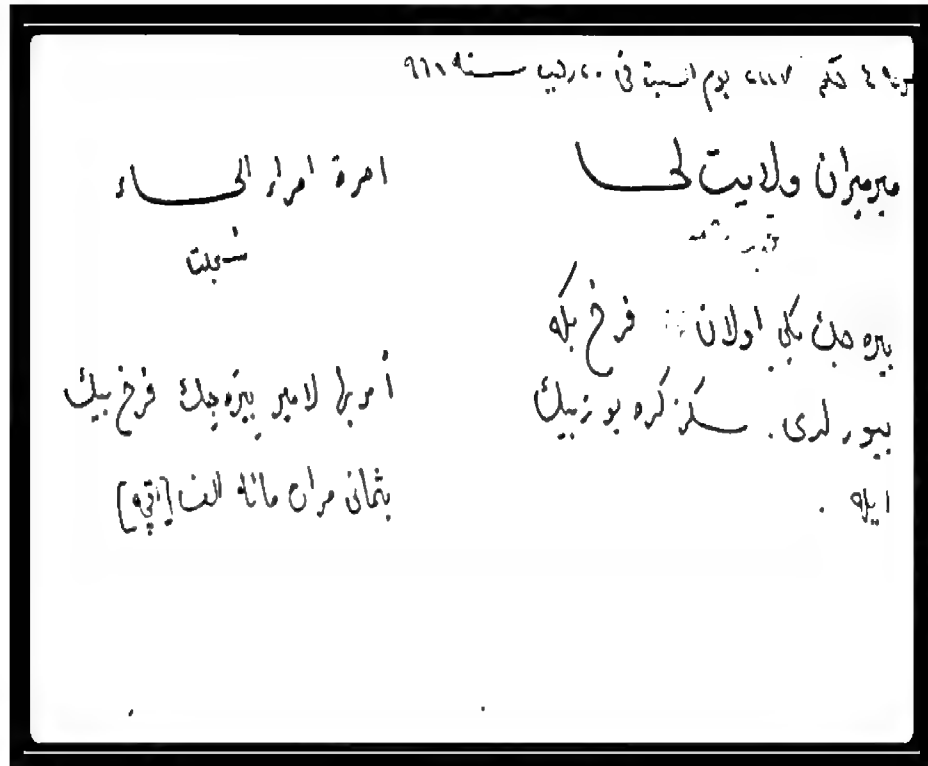 حكم ٢١١٧ يوم السبت في ٢٠ رجب سنه ٩٦١
ميرميران ولايت لحسا
بيره جك بكي اولان فرخ بكه
بيورلدى. سكز كره يوز بيك
ايله .
امرة امراء الحساء
أمر بها لامير بيره جك فرخ بيك
بثماني مرات مائة الف [اقچه]